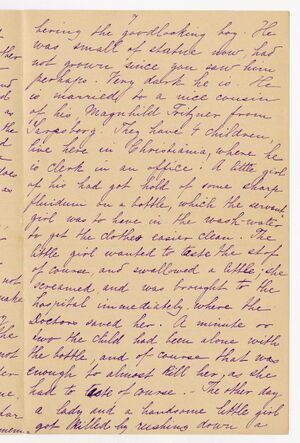 7
bering the goodlooking boy. He
was small of statue now, had
not grown since you saw him
perhaps. Very dark he is. He
is married to a nice cousin
of his Magnhild Fritzner from
Sarpsborg. They have 4 children,
live here in Christiania, where he
is clerk in an office. A little girl
of his had got hold of some sharp
fluidum on a bottle, which the servant
girl was to have in the wash-water
to get the clothes easier clean. The
little girl wanted to taste the stof
of course, and swallowed a little; she
screamed, and was brought to the
hospital immediately, where the
Doctors saved her. A minute or
two the child had been alone with
the bottle, and of course that was
enough to almost kill her, as she
had to taste of course. The other day
a lady and a handsome little girl
got killed by rushing down a